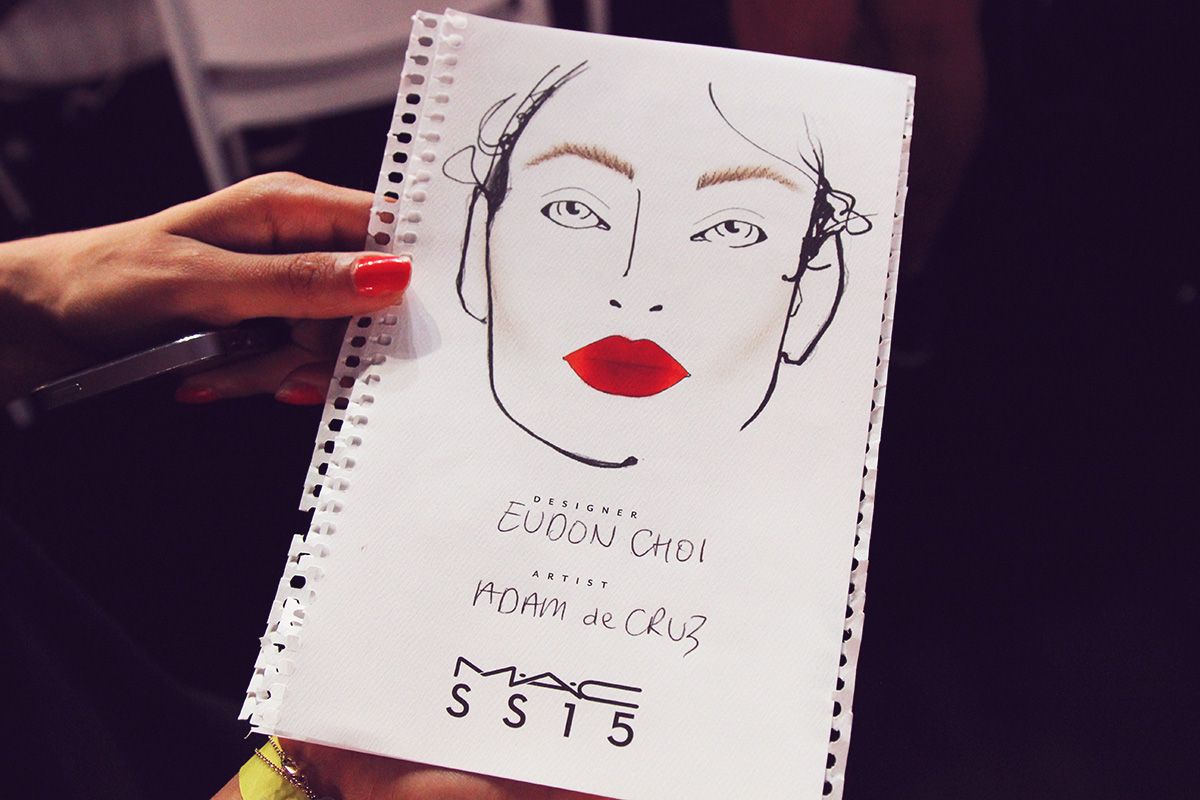 DESIGNER
EUDON CHOI
ARTIST
ADAM de CRUZ
M·A·C
SS15